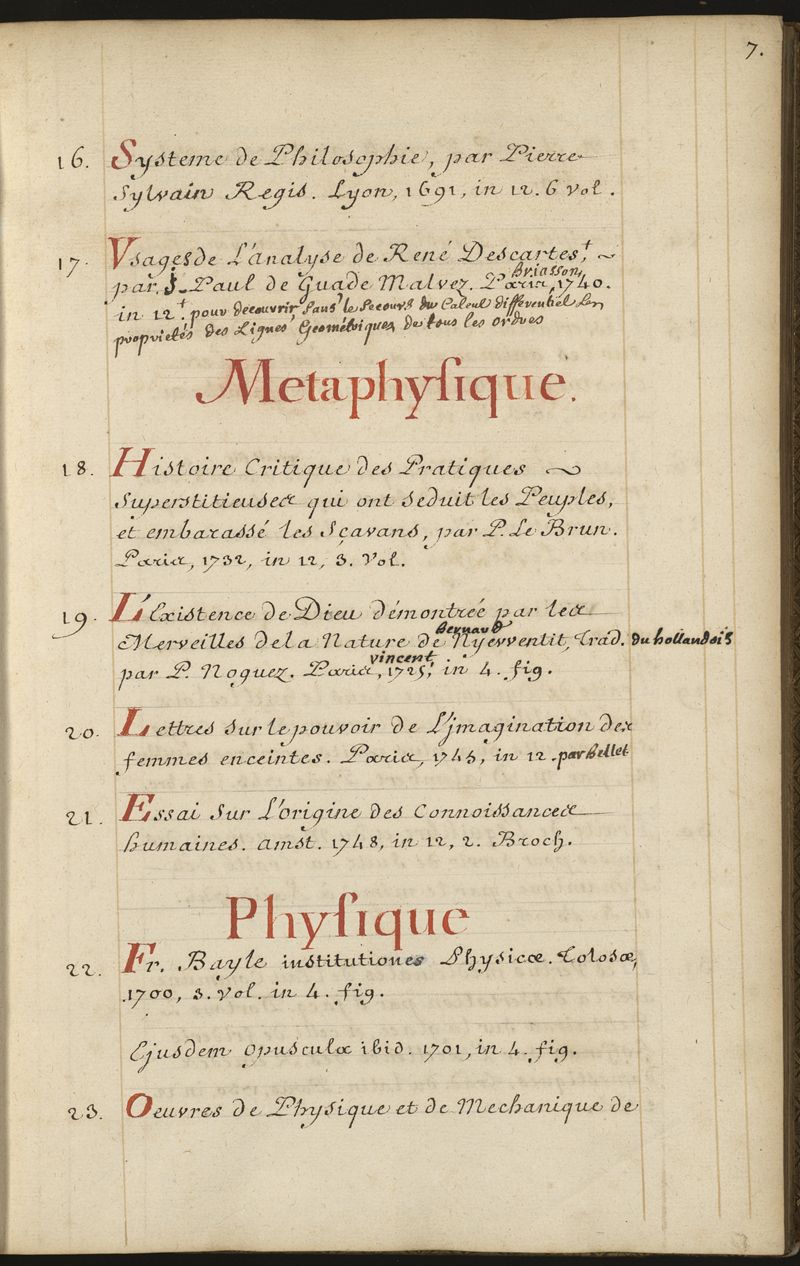 7.
16. Systeme de Philosophie, par Pierre
Sylvain Regis. Lyon, 1691, in 12. 6 vol.
17. Usages de L'analyse de René Descartes,+
Briasson,
par J. Paul de Guade Malvez. Paris, 1740.
in 12.+ pour decouvrir sans le secours du Calcul differentiel les
proprietés des Lignes Geometriques de tous les ordres
Metaphysique.
18. Histoire Critique des Pratiques
Superstitieuses qui ont seduit les Peuples,
et embarassé les Sçavans, par P. Le Brun.
Paris, 1732, in 12, 3. Vol.
19. L'Existence de Dieu démontrée par les
Bernard
Merveilles de la Nature de Nyevventit, Trad. du hollandois
vincent
par P. Noguez. Paris, 1725, in 4. fig.
20. Lettres sur le pouvoir de L'jmagination des
femmes enceintes. Paris, 1745, in 12. par Bellet
21. Essai sur L'origine des Connoissances
humaines. amst. 1748, in 12, 2. Broch.
Physique
22. Fr. Bayle institutiones Physicæ. Tolosæ,
1700, 3. vol. in 4. fig.
Ejusdem opuscula ibid. 1701, in 4. fig.
23. Oeuvres de Physique et de Mechanique de